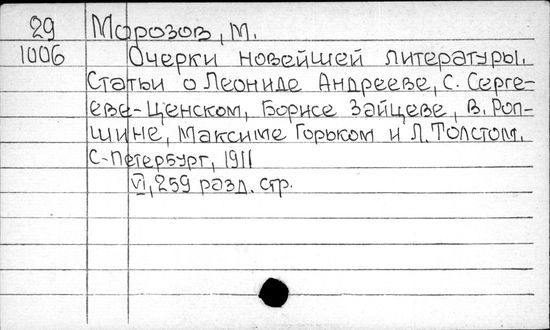 29 Морозов, М.
1006 Очерки новейшей литературы.
Статьи о Леониде Андрееве, С. Серге-
еве-Ценском, Борисе Зайцеве, В. Роп-
шине, Максиме Горьком и Л. Толстом.
С-Петербург, 1911
VI, 259 разд. стр.